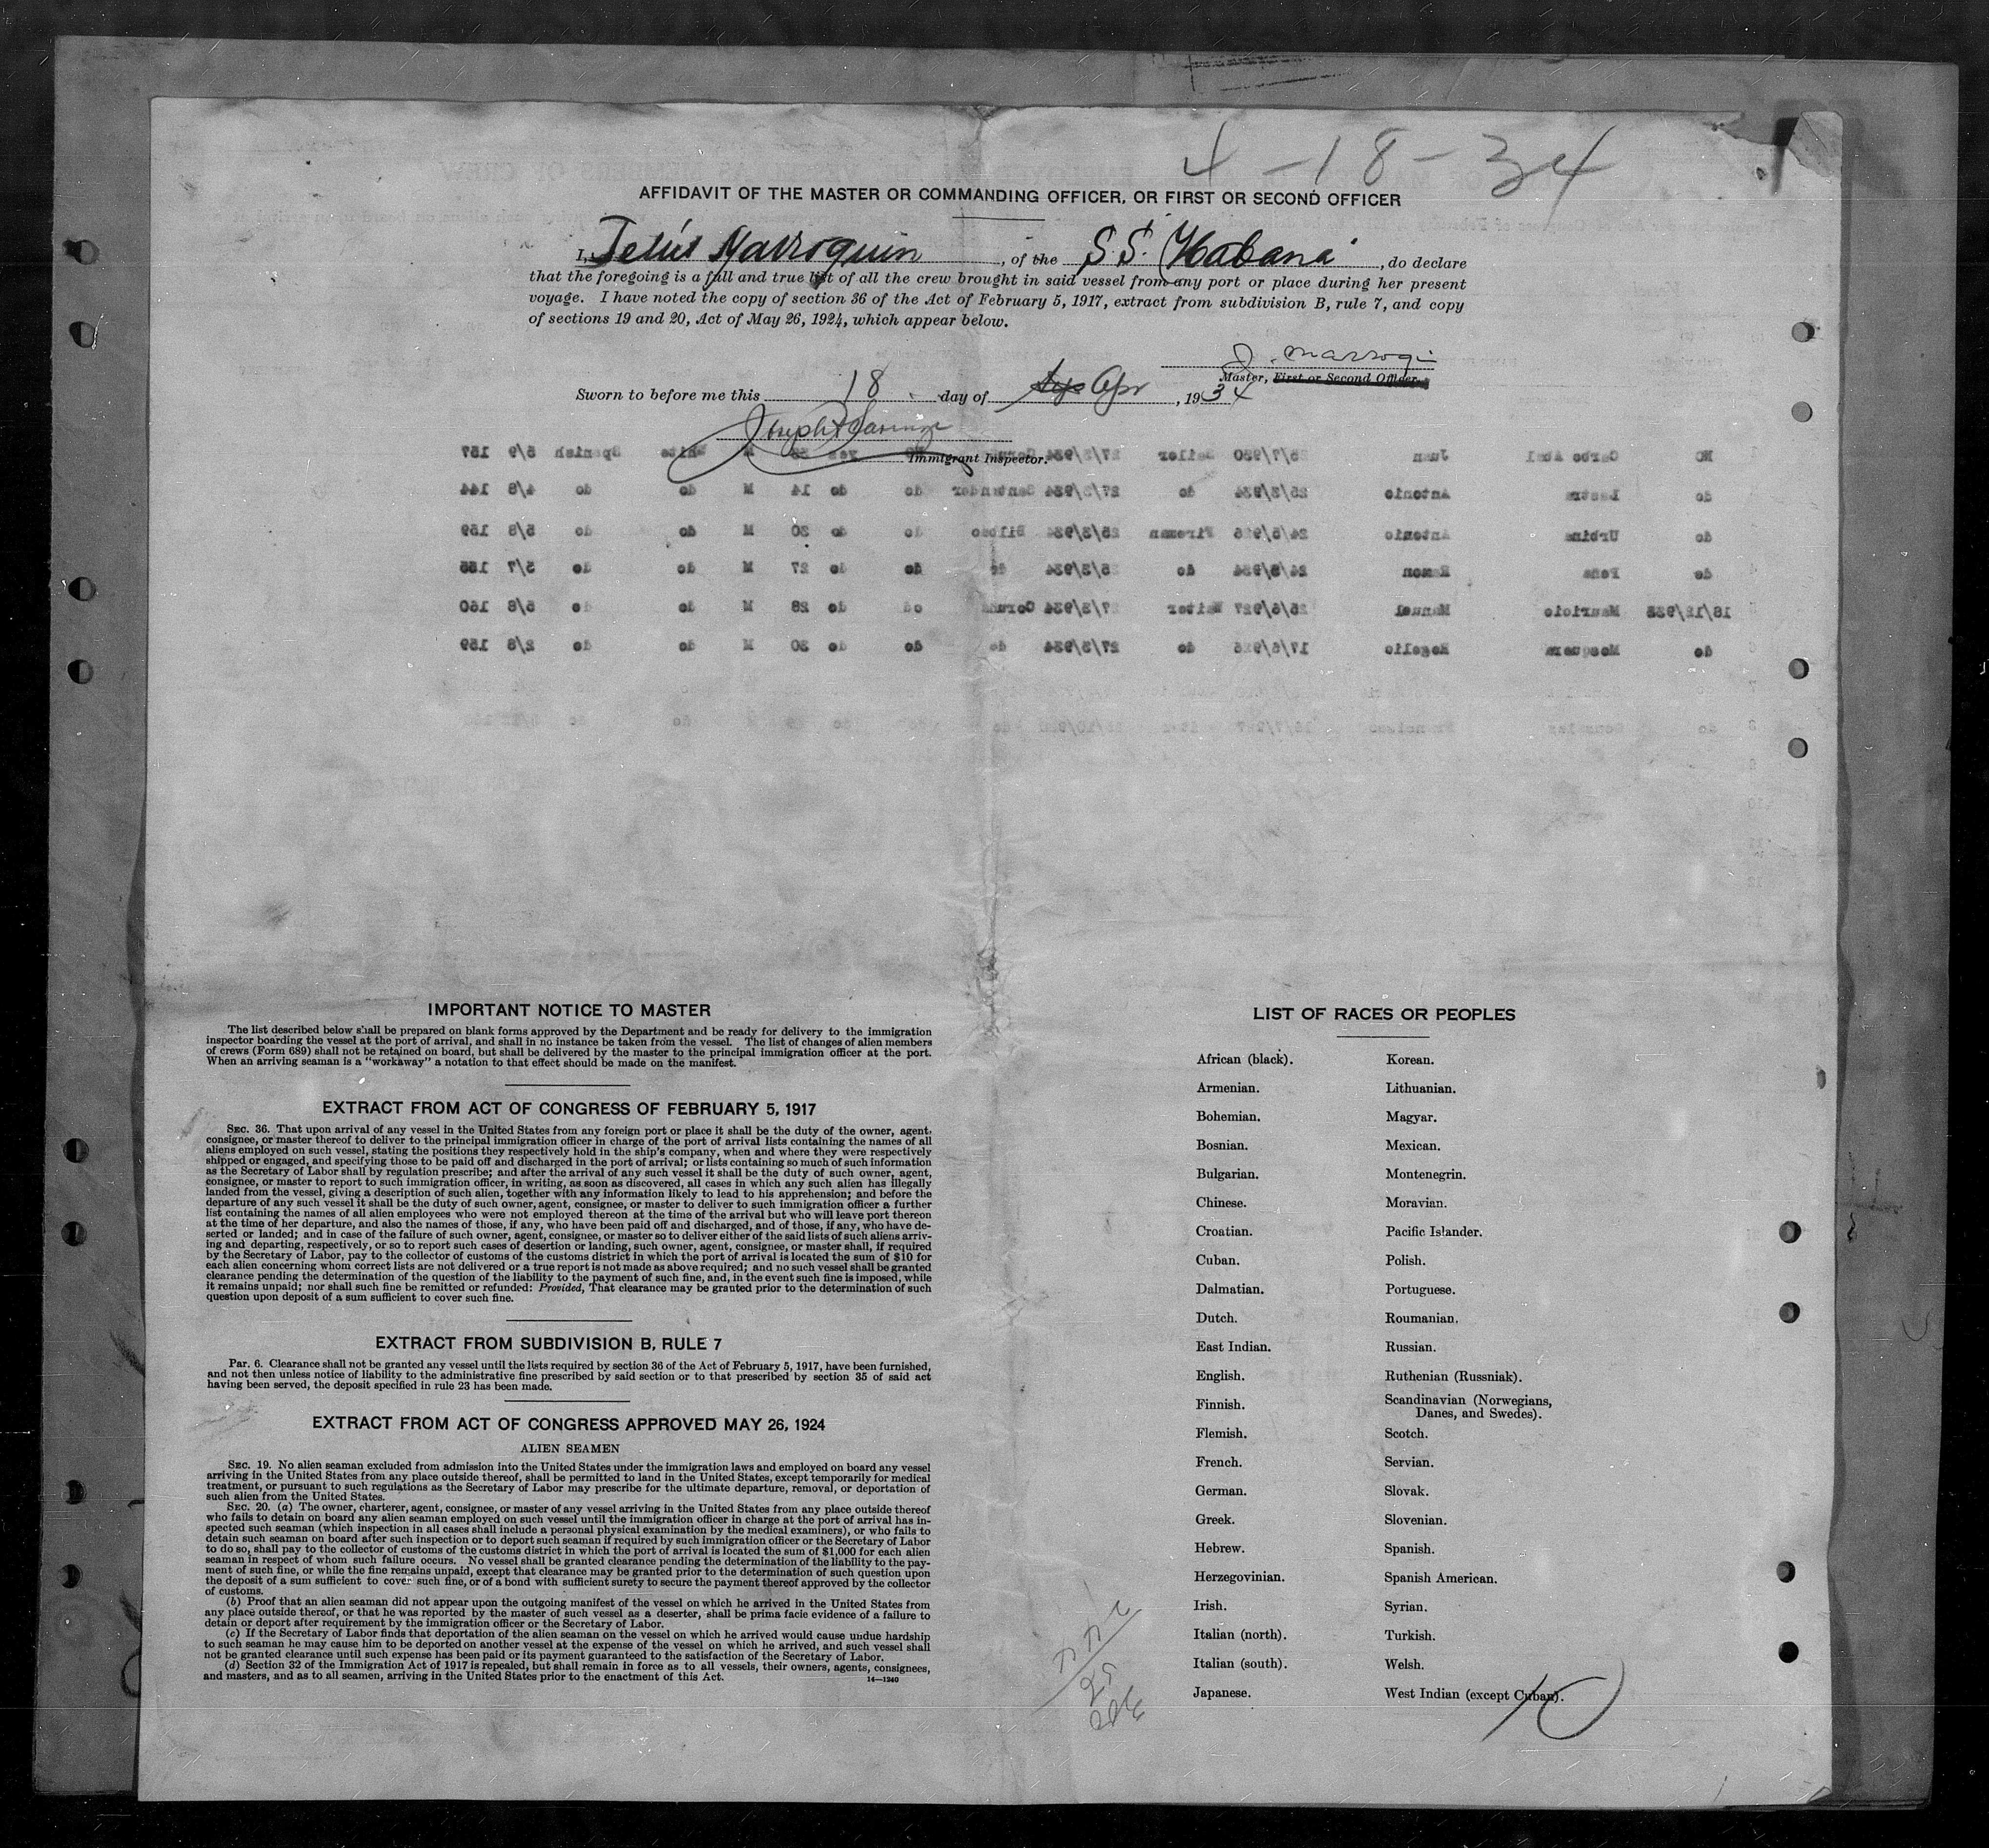 4-18-34
AFFIDAVIT OF THE MASTER OR COMMANDING OFFICER, OR FIRST OR SECOND OFFICER
I, Jesús Marroquin, of the S.S. "Habana", do declare
that the foregoing is a full and true list of all the crew brought in said vessel from any port or place during her present
voyage. I have noted the copy of section 36 of the Act of February 5, 1917, extract from subdivision B, rule 7, and copy
of sections 19 and 20, Act of May 26, 1924, which appear below.
Master, First or Second Officer.
Sworn to before me this 18 day of Apr, 1934
Immigrant Inspector.
IMPORTANT NOTICE TO MASTER
The list described below shall be prepared on blank forms approved by the Department and be ready for delivery to the immigration
inspector boarding the vessel at the port of arrival, and shall in no instance be taken from the vessel. The list of changes of alien members
of crews (Form 689) shall not be retained on board, but shall be delivered by the master to the principal immigration officer at the port.
When an arriving seaman is a "workaway" a notation to that effect should be made on the manifest.
EXTRACT FROM ACT OF CONGRESS OF FEBRUARY 5, 1917
SEC. 36. That upon arrival of any vessel in the United States from any foreign port or place it shall be the duty of the owner, agent,
consignee, or master thereof to deliver to the principal immigration officer in charge of the port of arrival lists containing the names of all
aliens employed on such vessel, stating the positions they respectively hold in the ship's company, when and where they were respectively
shipped or engaged, and specifying those to be paid off and discharged in the port of arrival; or lists containing so much of such information
as the Secretary of Labor shall by regulation prescribe; and after the arrival of any such vessel it shall be the duty of such owner, agent,
consignee, or master to report to such immigration officer, in writing, as soon as discovered, all cases in which any such alien has illegally
landed from the vessel, giving a description of such alien, together with any information likely to lead to his apprehension; and before the
departure of any such vessel it shall be the duty of such owner, agent, consignee, or master to deliver to such immigration officer a further
list containing the names of all alien employees who were not employed thereon at the time of the arrival but who will leave port thereon
at the time of her departure, and also the names of those, if any, who have been paid off and discharged, and of those, if any, who have de-
serted or landed; and in case of the failure of such owner, agent, consignee, or master so to deliver either of the said lists of such aliens arriv-
ing and departing, respectively, or so to report such cases of desertion or landing, such owner, agent, consignee, or master shall, if required
by the Secretary of Labor, pay to the collector of customs of the customs district in which the port of arrival is located the sum of $10 for
each alien concerning whom correct lists are not delivered or a true report is not made as above required; and no such vessel shall be granted
clearance pending the determination of the question of the liability to the payment of such fine, and, in the event such fine is imposed, while
it remains unpaid; nor shall such fine be remitted or refunded: Provided, That clearance may be granted prior to the determination of such
question upon deposit of a sum sufficient to cover such fine.
EXTRACT FROM SUBDIVISION B, RULE 7
PAR. 6. Clearance shall not be granted any vessel until the lists required by section 36 of the Act of February 5, 1917, have been furnished,
and not then unless notice of liability to the administrative fine prescribed by said section or to that prescribed by section 35 of said act
having been served, the deposit specified in rule 23 has been made.
EXTRACT FROM ACT OF CONGRESS APPROVED MAY 26, 1924
ALIEN SEAMEN
SEC. 19. No alien seaman excluded from admission into the United States under the immigration laws and employed on board any vessel
arriving in the United States from any place outside thereof, shall be permitted to land in the United States, except temporarily for medical
treatment, or pursuant to such regulations as the Secretary of Labor may prescribe for the ultimate departure, removal, or deportation of
such alien from the United States.
SEC. 20. (a) The owner, charterer, agent, consignee, or master of any vessel arriving in the United States from any place outside thereof
who fails to detain on board any alien seaman employed on such vessel until the immigration officer in charge at the port of arrival has in-
spected such seaman (which inspection in all cases shall include a personal physical examination by the medical examiners), or who fails to
detain such seaman on board after such inspection or to deport such seaman if required by such immigration officer or the Secretary of Labor
to do so, shall pay to the collector of customs of the customs district in which the port of arrival is located the sum of $1,000 for each alien
seaman in respect of whom such failure occurs. No vessel shall be granted clearance pending the determination of the liability to the pay-
ment of such fine, or while the fine remains unpaid, except that clearance may be granted prior to the determination of such question upon
the deposit of a sum sufficient to cover such fine, or of a bond with sufficient surety to secure the payment thereof approved by the collector
of customs.
(b) Proof that an alien seaman did not appear upon the outgoing manifest of the vessel on which he arrived in the United States from
any place outside thereof, or that he was reported by the master of such vessel as a deserter, shall be prima facie evidence of a failure to
detain or deport after requirement by the immigration officer or the Secretary of Labor.
(c) If the Secretary of Labor finds that deportation of the alien seaman on the vessel on which he arrived would cause undue hardship
to such seaman he may cause him to be deported on another vessel at the expense of the vessel on which he arrived, and such vessel shall
not be granted clearance until such expense has been paid or its payment guaranteed to the satisfaction of the Secretary of Labor.
(d) Section 32 of the Immigration Act of 1917 is repealed, but shall remain in force as to all vessels, their owners, agents, consignees,
and masters, and as to all seamen, arriving in the United States prior to the enactment of this Act.
14—1240
LIST OF RACES OR PEOPLES
African (black). Korean.
Armenian. Lithuanian.
Bohemian. Magyar.
Bosnian. Mexican.
Bulgarian. Montenegrin.
Chinese. Moravian.
Croatian. Pacific Islander.
Cuban. Polish.
Dalmatian. Portuguese.
Dutch. Roumanian.
East Indian. Russian.
English. Ruthenian (Russniak).
Finnish. Scandinavian (Norwegians,
Danes, and Swedes).
Flemish. Scotch.
French. Servian.
German. Slovak.
Greek. Slovenian.
Hebrew. Spanish.
Herzegovinian. Spanish American.
Irish. Syrian.
Italian (north). Turkish.
Italian (south). Welsh.
Japanese. West Indian (except Cuban).
10